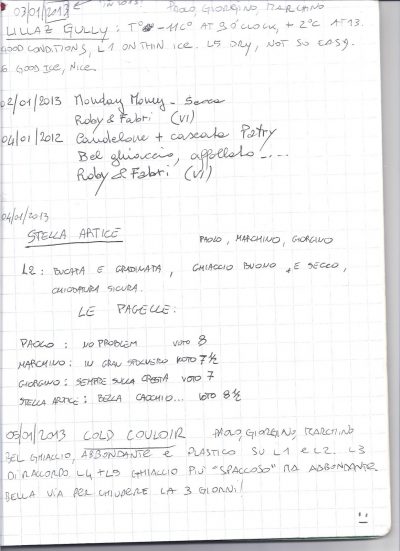 03/01/2013 PAOLO, GIORGINO, MARCHINO
LILLAZ GULLY: T° -11C° AT 9 O'CLOCK, +2°C AT 13.
GOOD CONDITIONS, L1 ON THIN ICE. L5 DRY, NOT SO EASY.
6 GOOD ICE, NICE.
02/01/2013 Monday Money - Secca
Roby & Fabri (VI)
04/01/2012 Candelone + cascata Patry
Bel ghiaccio, affollato -....
Roby & Fabri (VI)
04/01/2013
STELLA ARTICE PAOLO, MARCHINO, GIORGINO
L2: BUCATA E GRADINATA, GHIACCIO BUONO E SECCO,
CHIODATURA SICURA.
LE PAGELLE:
PAOLO: NO PROBLEM VOTO 8
MARCHINO: IN GRAN SPOLVERO VOTO 7½
GIORGINO: SEMPRE SULLA CRESTA VOTO 7
STELLA ARTICE: BELLA CACCHIO... VOTO 8½
05/01/2013 COLD COULOIR PAOLO, GIORGINO, MARCHINO
BEL GHIACCIO, ABBONDANTE E PLASTICO SU L1 E L2. L3
DI RACCORDO L4+L5 GHIACCIO PIÙ "SPACCOSO" MA ABBONDANTE
BELLA VIA PER CHIUDERE LA 3 GIORNI!